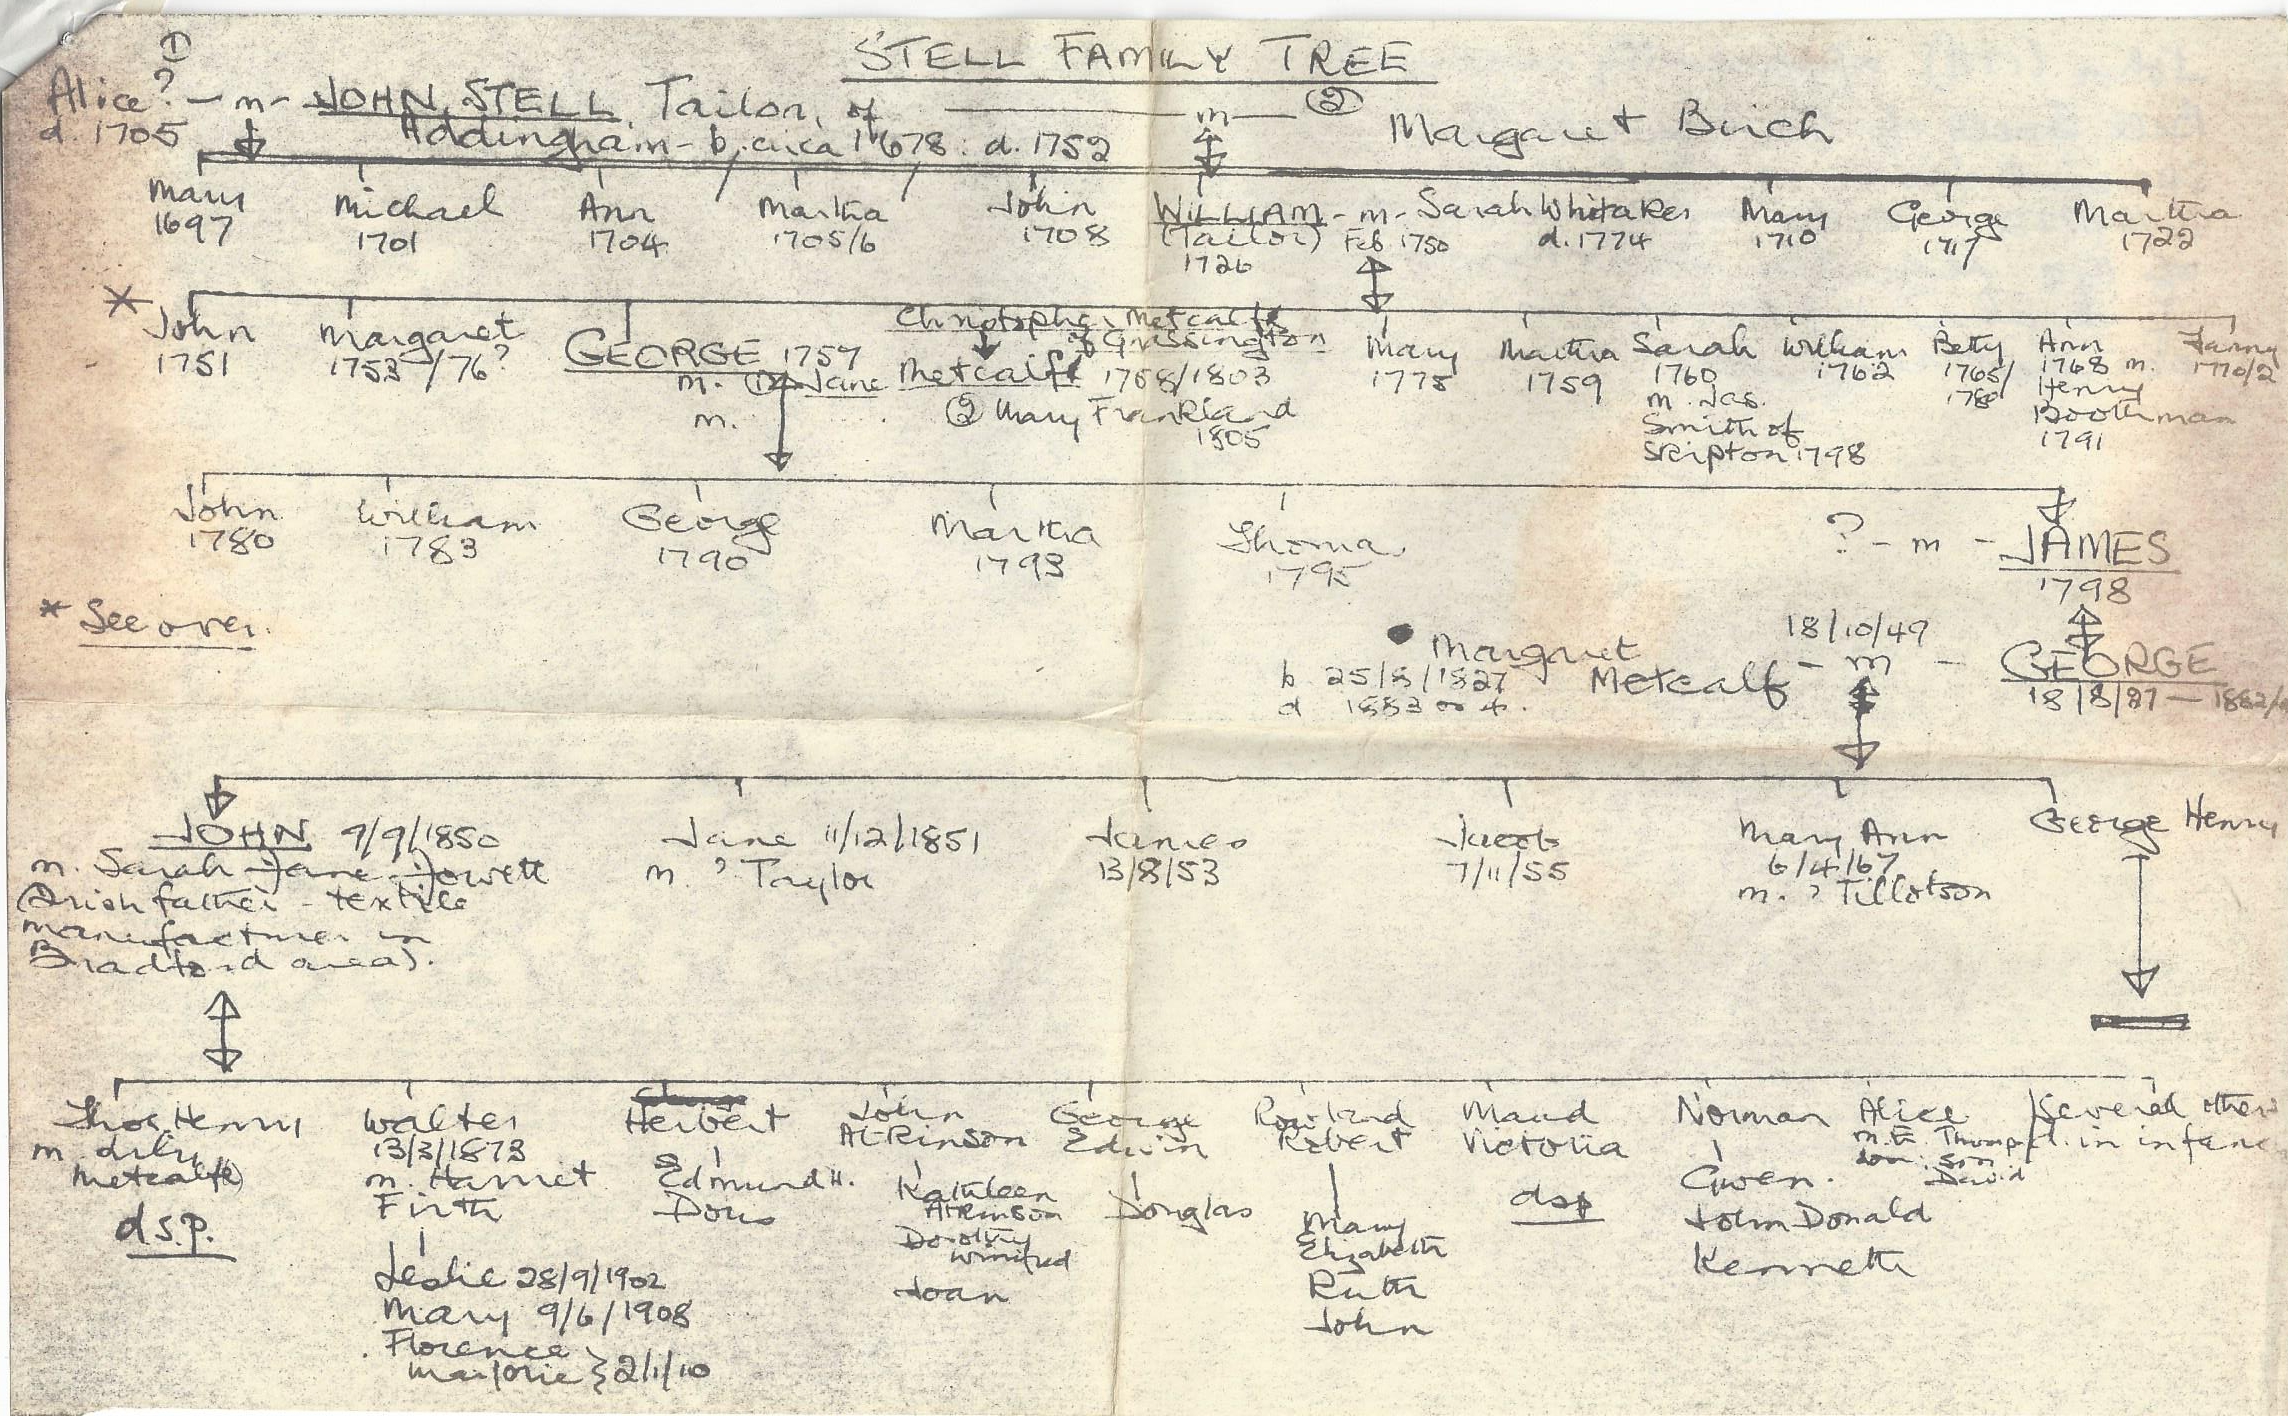 STELL FAMILY TREE
①
Alice ? - m - JOHN STELL, Tailor, of ——— m — ② Margaret Birch
d. 1705 Addingham - b. circa 1678 : d. 1752
Mary Michael Ann Martha John WILLIAM - m - Sarah Whitaker Mary George Martha
1697 1701 1704 1705/6 1708 (Tailor) Feb 1750 d. 1774 1710 1717 1722
1726
* John Margaret GEORGE 1757 Christopher Metcalfe Mary Martha Sarah William Betty Ann Fanny
1751 1753/76? of Grassington 1775 1759 1760 1762 1765/ 1768 m. 1770/2
m. ① Jane Metcalfe 1758/1803 m. Jas. 1780 Henry
m. ② Mary Frankland Smith of Boothman
1805 Skipton 1798 1791
John William George Martha Thomas ? - m - JAMES
1780 1783 1790 1793 1795 1798
* See over.
18/10/49
Margaret Metcalf - m - GEORGE
b 25/8/1827
d 1883 or 4.
JOHN 9/9/1850 Jane 11/12/1851 James Jacob Mary Ann George Henry
m. Sarah Jane Jowett m. ? Taylor 13/8/53 7/11/55 6/4/67
(Irish father - textile m. ? Tillotson
manufacturer in
Bradford area).
Thos. Henry Walter Herbert John George Rowland Maud Norman Alice Several others
m. Lily 13/3/1873 Atkinson Edwin Robert Victoria d. in
Metcalf(e) m. Harriet Edmund H. Kathleen Douglas Mary dsp Gwen. son
d.s.p. Firth Doris Atkinson Elizabeth John Donald David
Leslie 28/9/1902 Dorothy Ruth Kenneth
Mary 9/6/1908 Winifred John
Florence Joan
Marjorie } 2/1/10